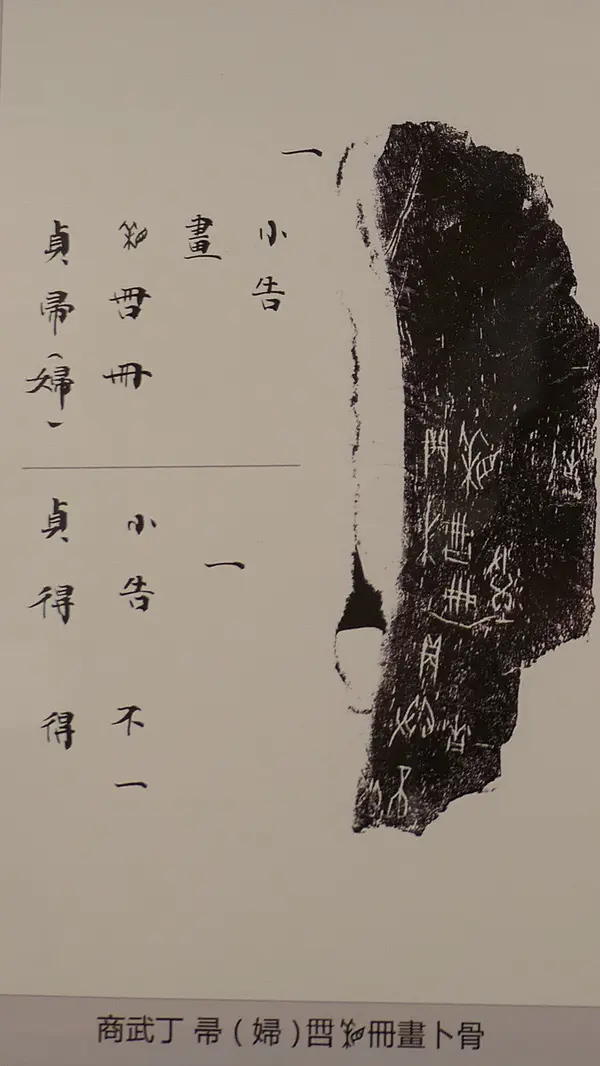 貞帚(婦)
冊
畫
小告
一
貞得 得
小告 不一
一
商武丁 帚(婦)冊畫卜骨